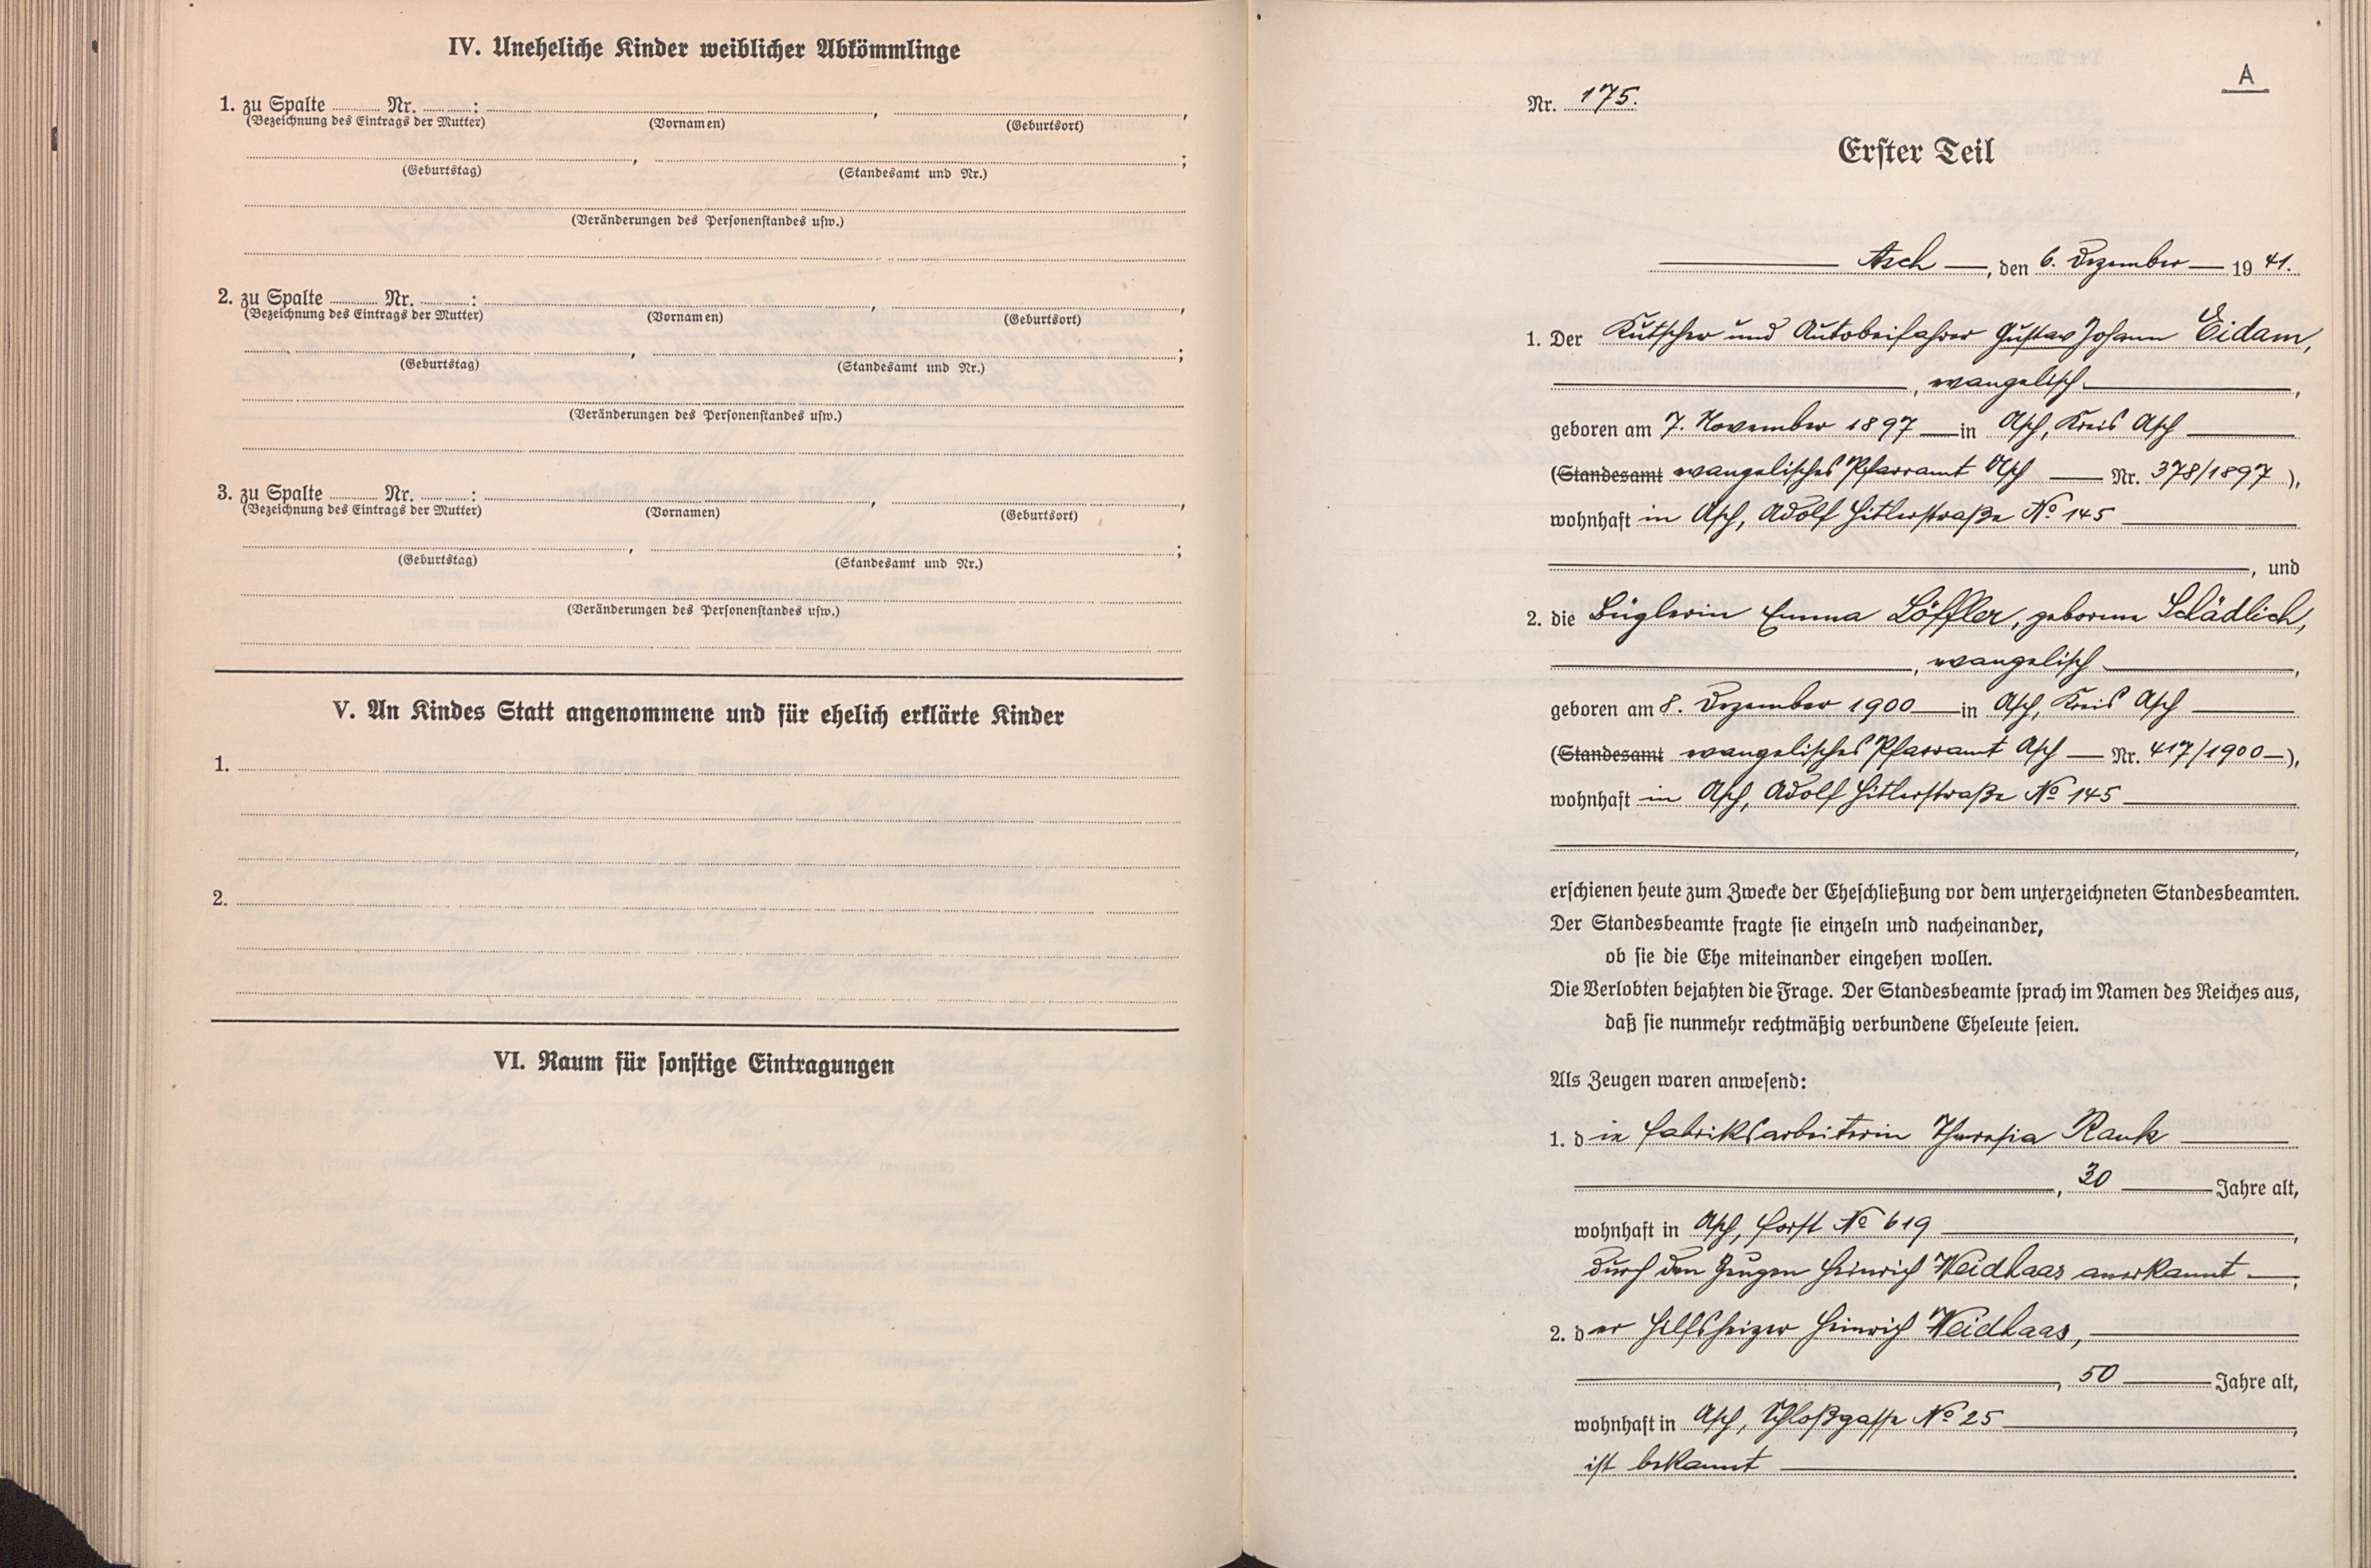 IV. Uneheliche Kinder weiblicher Abkömmlinge
1. zu Spalte ........ Nr. ........: ........, ........,
(Bezeichnung des Eintrags der Mutter) (Vornamen) (Geburtsort)
........, ........;
(Geburtstag) (Standesamt und Nr.)
(Veränderungen des Personenstandes usw.)
2. zu Spalte ........ Nr. ........: ........, ........,
(Bezeichnung des Eintrags der Mutter) (Vornamen) (Geburtsort)
........, ........;
(Geburtstag) (Standesamt und Nr.)
(Veränderungen des Personenstandes usw.)
3. zu Spalte ........ Nr. ........: ........, ........,
(Bezeichnung des Eintrags der Mutter) (Vornamen) (Geburtsort)
........, ........;
(Geburtstag) (Standesamt und Nr.)
(Veränderungen des Personenstandes usw.)
V. An Kindes Statt angenommene und für ehelich erklärte Kinder
1.
2.
VI. Raum für sonstige Eintragungen
A
Nr. 175.
Erster Teil
Asch, den 6. Dezember 1941.
1. Der Kutscher und Autobeifahrer Gustav Johann Eidam,
, evangelisch,
geboren am 7. November 1897 in Asch, Kreis Asch
(Standesamt evangelisches Pfarramt Asch Nr. 378/1897),
wohnhaft in Asch, Adolf Hitlerstraße No 145
, und
2. die Büglerin Emma Löffler, geborene Schädlich,
, evangelisch,
geboren am 8. Dezember 1900 in Asch, Kreis Asch
(Standesamt evangelisches Pfarramt Asch Nr. 417/1900),
wohnhaft in Asch, Adolf Hitlerstraße No 145
,
erschienen heute zum Zwecke der Eheschließung vor dem unterzeichneten Standesbeamten.
Der Standesbeamte fragte sie einzeln und nacheinander,
ob sie die Ehe miteinander eingehen wollen.
Die Verlobten bejahten die Frage. Der Standesbeamte sprach im Namen des Reiches aus,
daß sie nunmehr rechtmäßig verbundene Eheleute seien.
Als Zeugen waren anwesend:
1. die Fabriksarbeiterin Theresia Rank
, 30 Jahre alt,
wohnhaft in Asch, Forst No 619,
durch den Zeugen Heinrich Weidhaas anerkannt,
2. der Hilfsheizer Heinrich Weidhaas,
, 50 Jahre alt,
wohnhaft in Asch, Schloßgasse No 25,
ist bekannt.